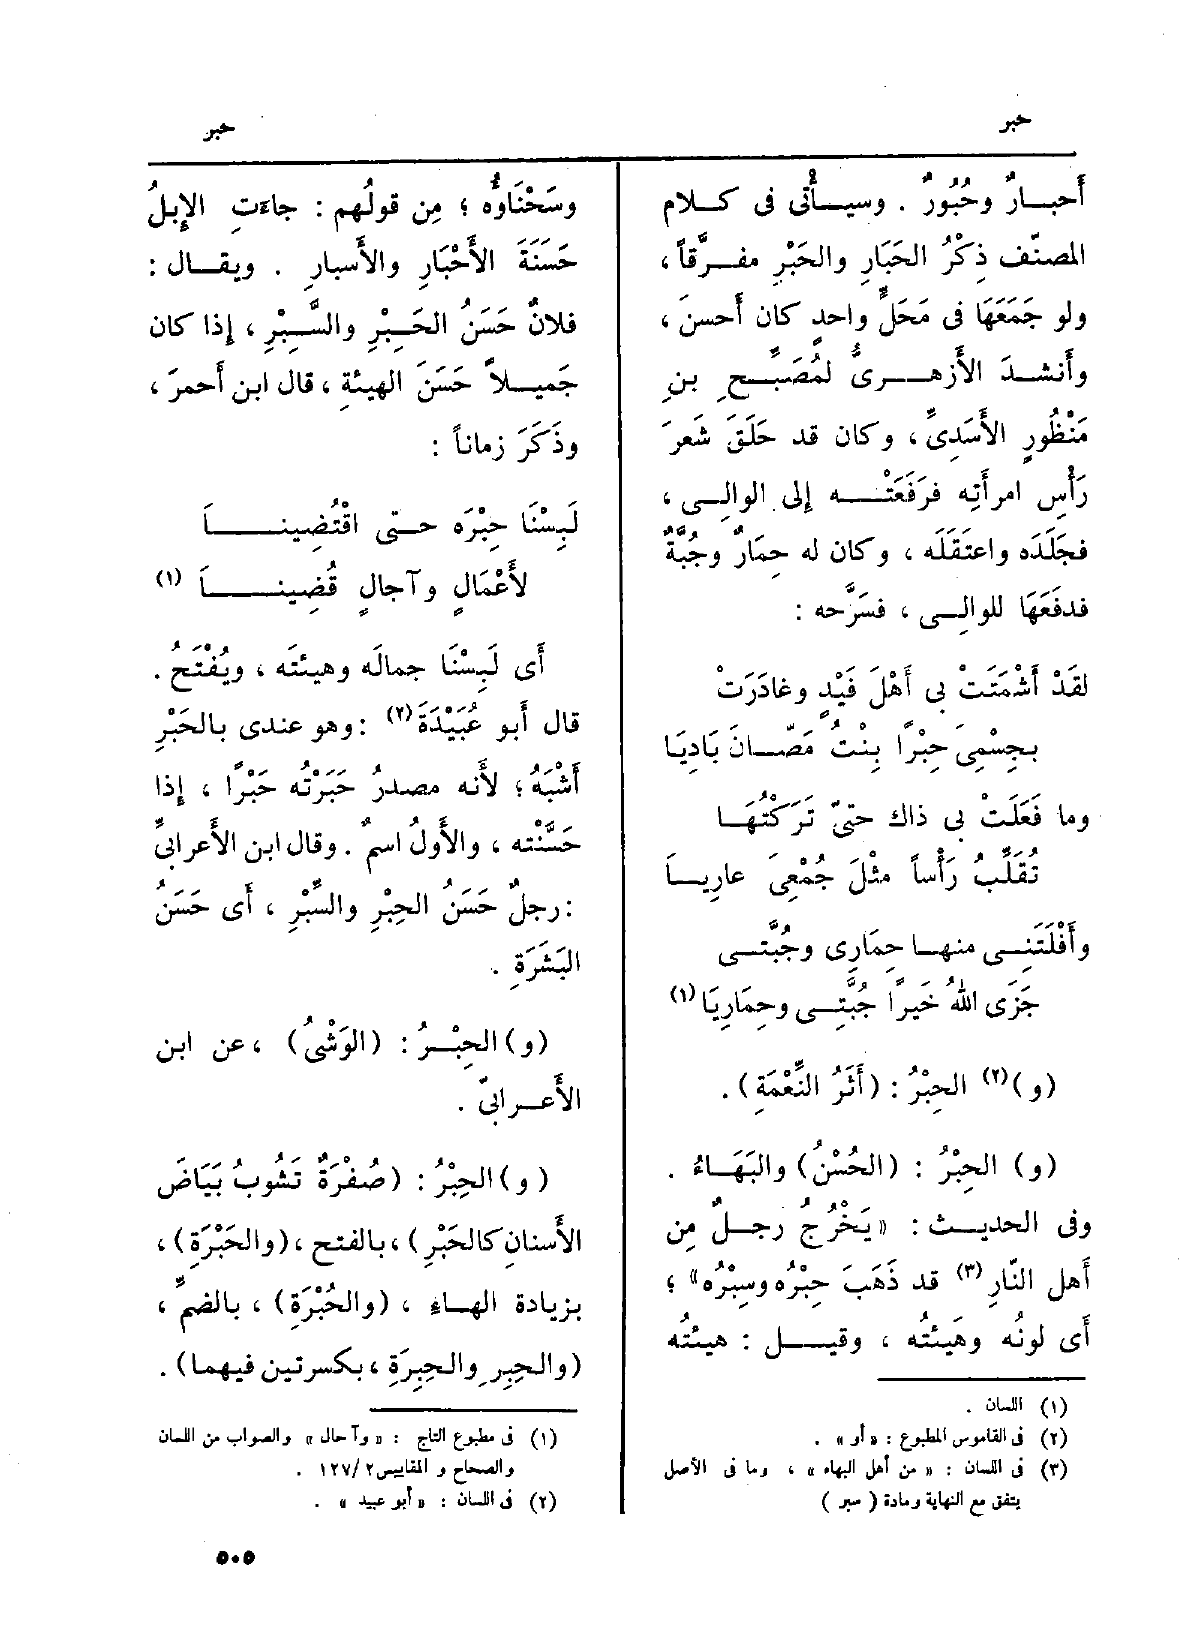 حبر
حبر
أَحبارٌ وحُبُورٌ . وسيأْتى فى كلام
المصنّف ذِكْرُ الحَبَارِ والحَبْرِ مفرَّقاً ،
ولو جَمَعَهَا فى مَحَلٍّ واحدٍ كان أَحسنَ ،
وأَنشدَ الأَزهرىُّ لمُصَبِّح بنِ
مَنْظُورٍ الأَسَدِىّ ، وكان قد حَلَقَ شَعرَ
رَأْسِ امرأَتِه فرَفَعَتْه إلى الوالِى ،
فجَلَدَه واعتَقَلَه ، وكان له حِمَارٌ وجُبَّةٌ
فدفَعَهَا للوالِى ، فسَرَّحه :
لقَدْ أَشْمَتَتْ بى أَهْلَ فَيْدٍ وغادَرَتْ
بجِسْمِىَ حِبْرًا بِنْتُ مَصّانَ بَادِيَا
وما فَعَلَتْ بى ذاك حتىّ تَرَكْتُهَا
تُقَلِّبُ رَأْساً مثْلَ جُمْعِىَ عارِيا
وأَفْلَتَنِى منها حِمَارِى وجُبَّتى
جَزَى اللهُ خَيرًا جُبَّتِى وحِمَارِيَا (١)
(و)(٢) الحِبْرُ : (أَثَرُ النِّعْمَةِ) .
(و) الحِبْرُ : (الحُسْنُ) والبَهَاءُ .
وفى الحديث : «يَخْرُجُ رجلٌ مِن
أَهل النّارِ (٣) قد ذَهَبَ حِبْرُه وسِبْرُه» ؛
أَى لونُه وهَيئتُه ، وقيل : هيئتُه
(١) اللسان .
(٢) فى القاموس المطبوع : «أو» .
(٣) فى اللسان : « من أهل البهاء » ، وما فى الأصل
يتفق مع النهاية ومادة ( سبر )
وسَحْنَاؤُه ؛ مِن قولُهم : جاءَتِ الإِبلُ
حَسَنَةَ الأَحْبَارِ والأَسبارِ . ويقال :
فلانٌ حَسَنُ الحَِبْرِ والسَِّبْرِ ، إذا كان
جَميلاً حَسَنَ الهيئةِ ، قال ابن أَحمرَ ،
وذَكَرَ زماناً :
لَبِسْنَا حِبْرَه حتى اقْتُضِينَا
لأَعْمَالٍ وآجالٍ قُضِينَا (١)
أَى لَبِسْنَا جمالَه وهيئتَه ، ويُفْتَحُ .
قال أَبو عُبَيْدَةَ (٢) : وهو عندى بالحَبْرِ
أَشْبَهُ ؛ لأَنه مصدرُ حَبَرْتُه حَبْرًا ، إذا
حَسَّنْته ، والأَولُ اسمٌ . وقال ابن الأَعرابىِّ
: رجلٌ حَسَنُ الحِبْرِ والسِّبْرِ ، أَى حَسَنُ
البَشَرَةِ .
(و) الحِبْرُ : (الوَشْىُ) ، عن ابن
الأَعرابىّ .
(و) الحِبْرُ : (صُفْرَةٌ تَشُوبُ بَيَاضَ
الأَسنانِ كالحَبْرِ) ، بالفتح ، (والحَبْرَةِ) ،
بزيادة الهاءِ ، (والحُبْرَةِ) ، بالضمِّ ،
(والحِبِرِ والحِبِرَةِ ، بكسرتين فيهما) .
(١) فى مطبوع التاج : « وآحال » والصواب من اللسان
والصحاح و المقاييس ٢/ ١٢٧ .
(٢) فى اللسان : « أبو عبيد » .
٥٠٥